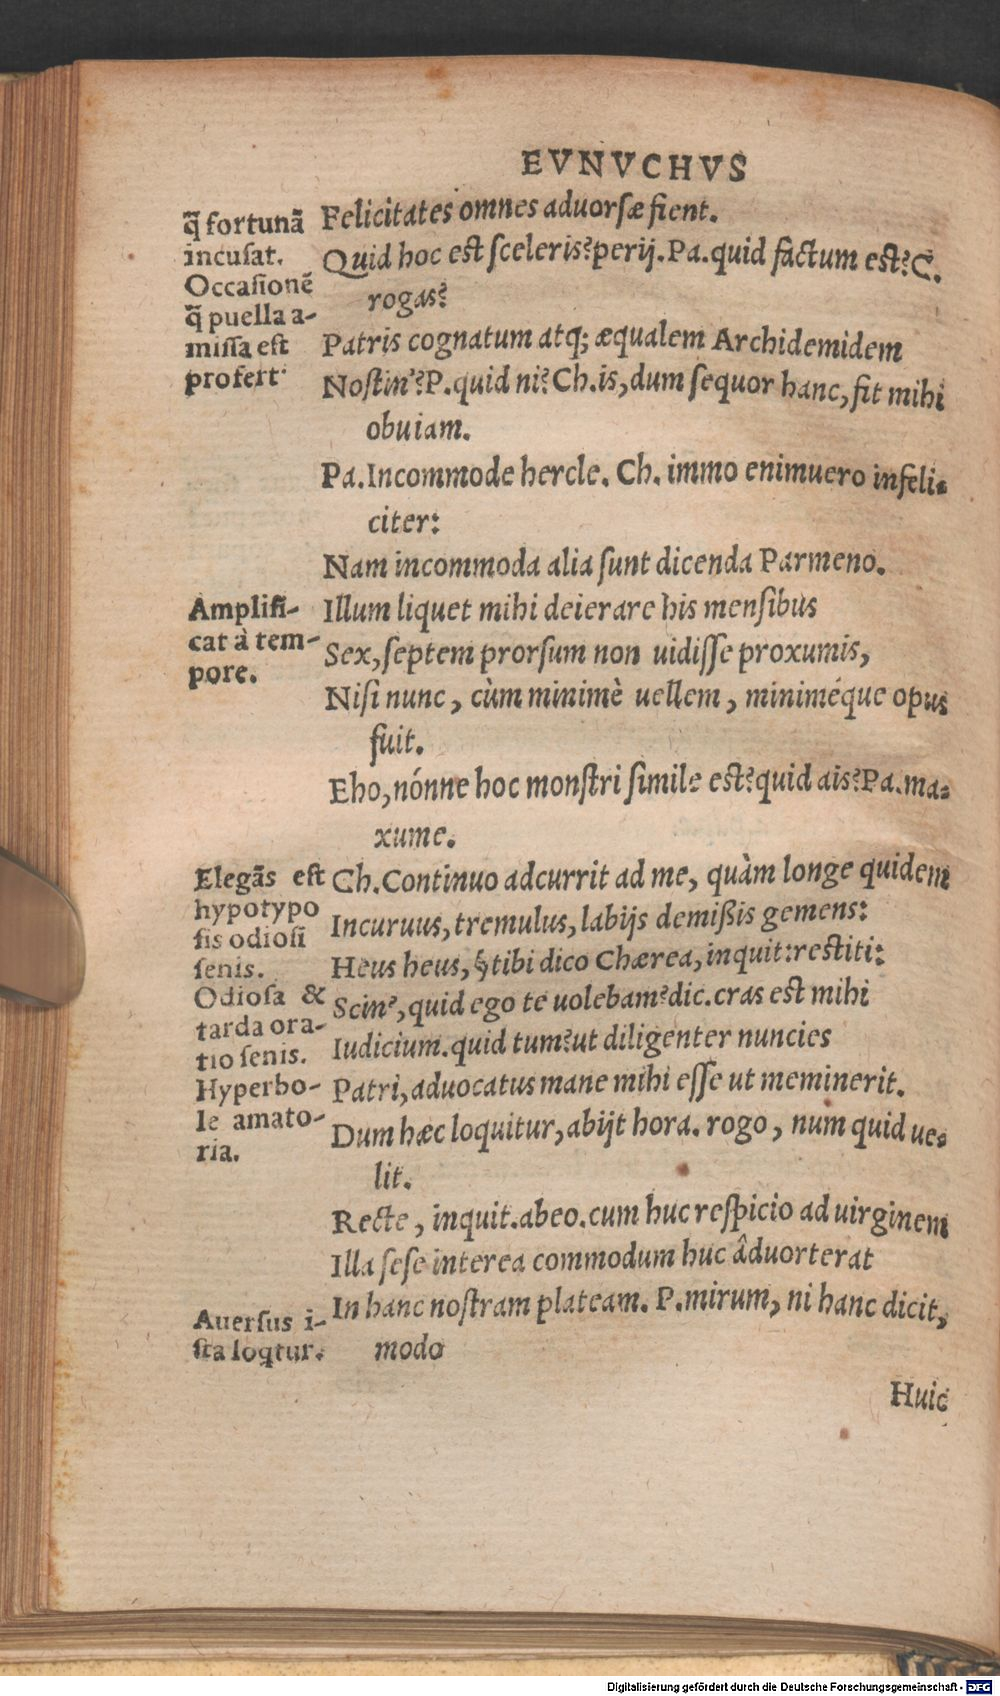 EVNVCHVS
q̃ fortunã
incusat.
Occasionẽ
q̃ puella a-
missa est
profert
Felicitates omnes aduorsæ fient.
Quid hoc est sceleris? perij. Pa. quid factum est? C.
rogas?
Patris cognatum atq; æqualem Archidemidem
Nostin'? P. quid ni? Ch. is, dum sequor hanc, fit mihi
obuiam.
Pa. Incommode hercle. Ch. immo enimuero infeli-
citer:
Nam incommoda alia sunt dicenda Parmeno.
Amplifi-
cat à tem-
pore.
Illum liquet mihi deierare his mensibus
Sex, septem prorsum non uidisse proxumis,
Nisi nunc, cùm minimè uellem, miniméque opus
fuit.
Eho, nónne hoc monstri simile est? quid ais? Pa. ma-
xume.
Elegãs est
hypotypo
sis odiosi
senis.
Odiosa &
tarda ora-
tio senis.
Hyperbo-
le amato-
ria.
Ch. Continuo adcurrit ad me, quàm longe quidem
Incuruus, tremulus, labijs demißis gemens:
Heus heus, tibi dico Chærea, inquit: restiti:
Scin', quid ego te uolebam? dic. cras est mihi
Iudicium. quid tum? ut diligenter nuncies
Patri, aduocatus mane mihi esse ut meminerit.
Dum hæc loquitur, abijt hora. rogo, num quid ue-
lit.
Recte, inquit. abeo. cum huc respicio ad uirginem
Illa sese interea commodum huc âduorterat
In hanc nostram plateam. P. mirum, ni hanc dicit,
modo
Auersus i-
sta loqtur.
Huic
Digitalisierung gefördert durch die Deutsche Forschungsgemeinschaft - DFG